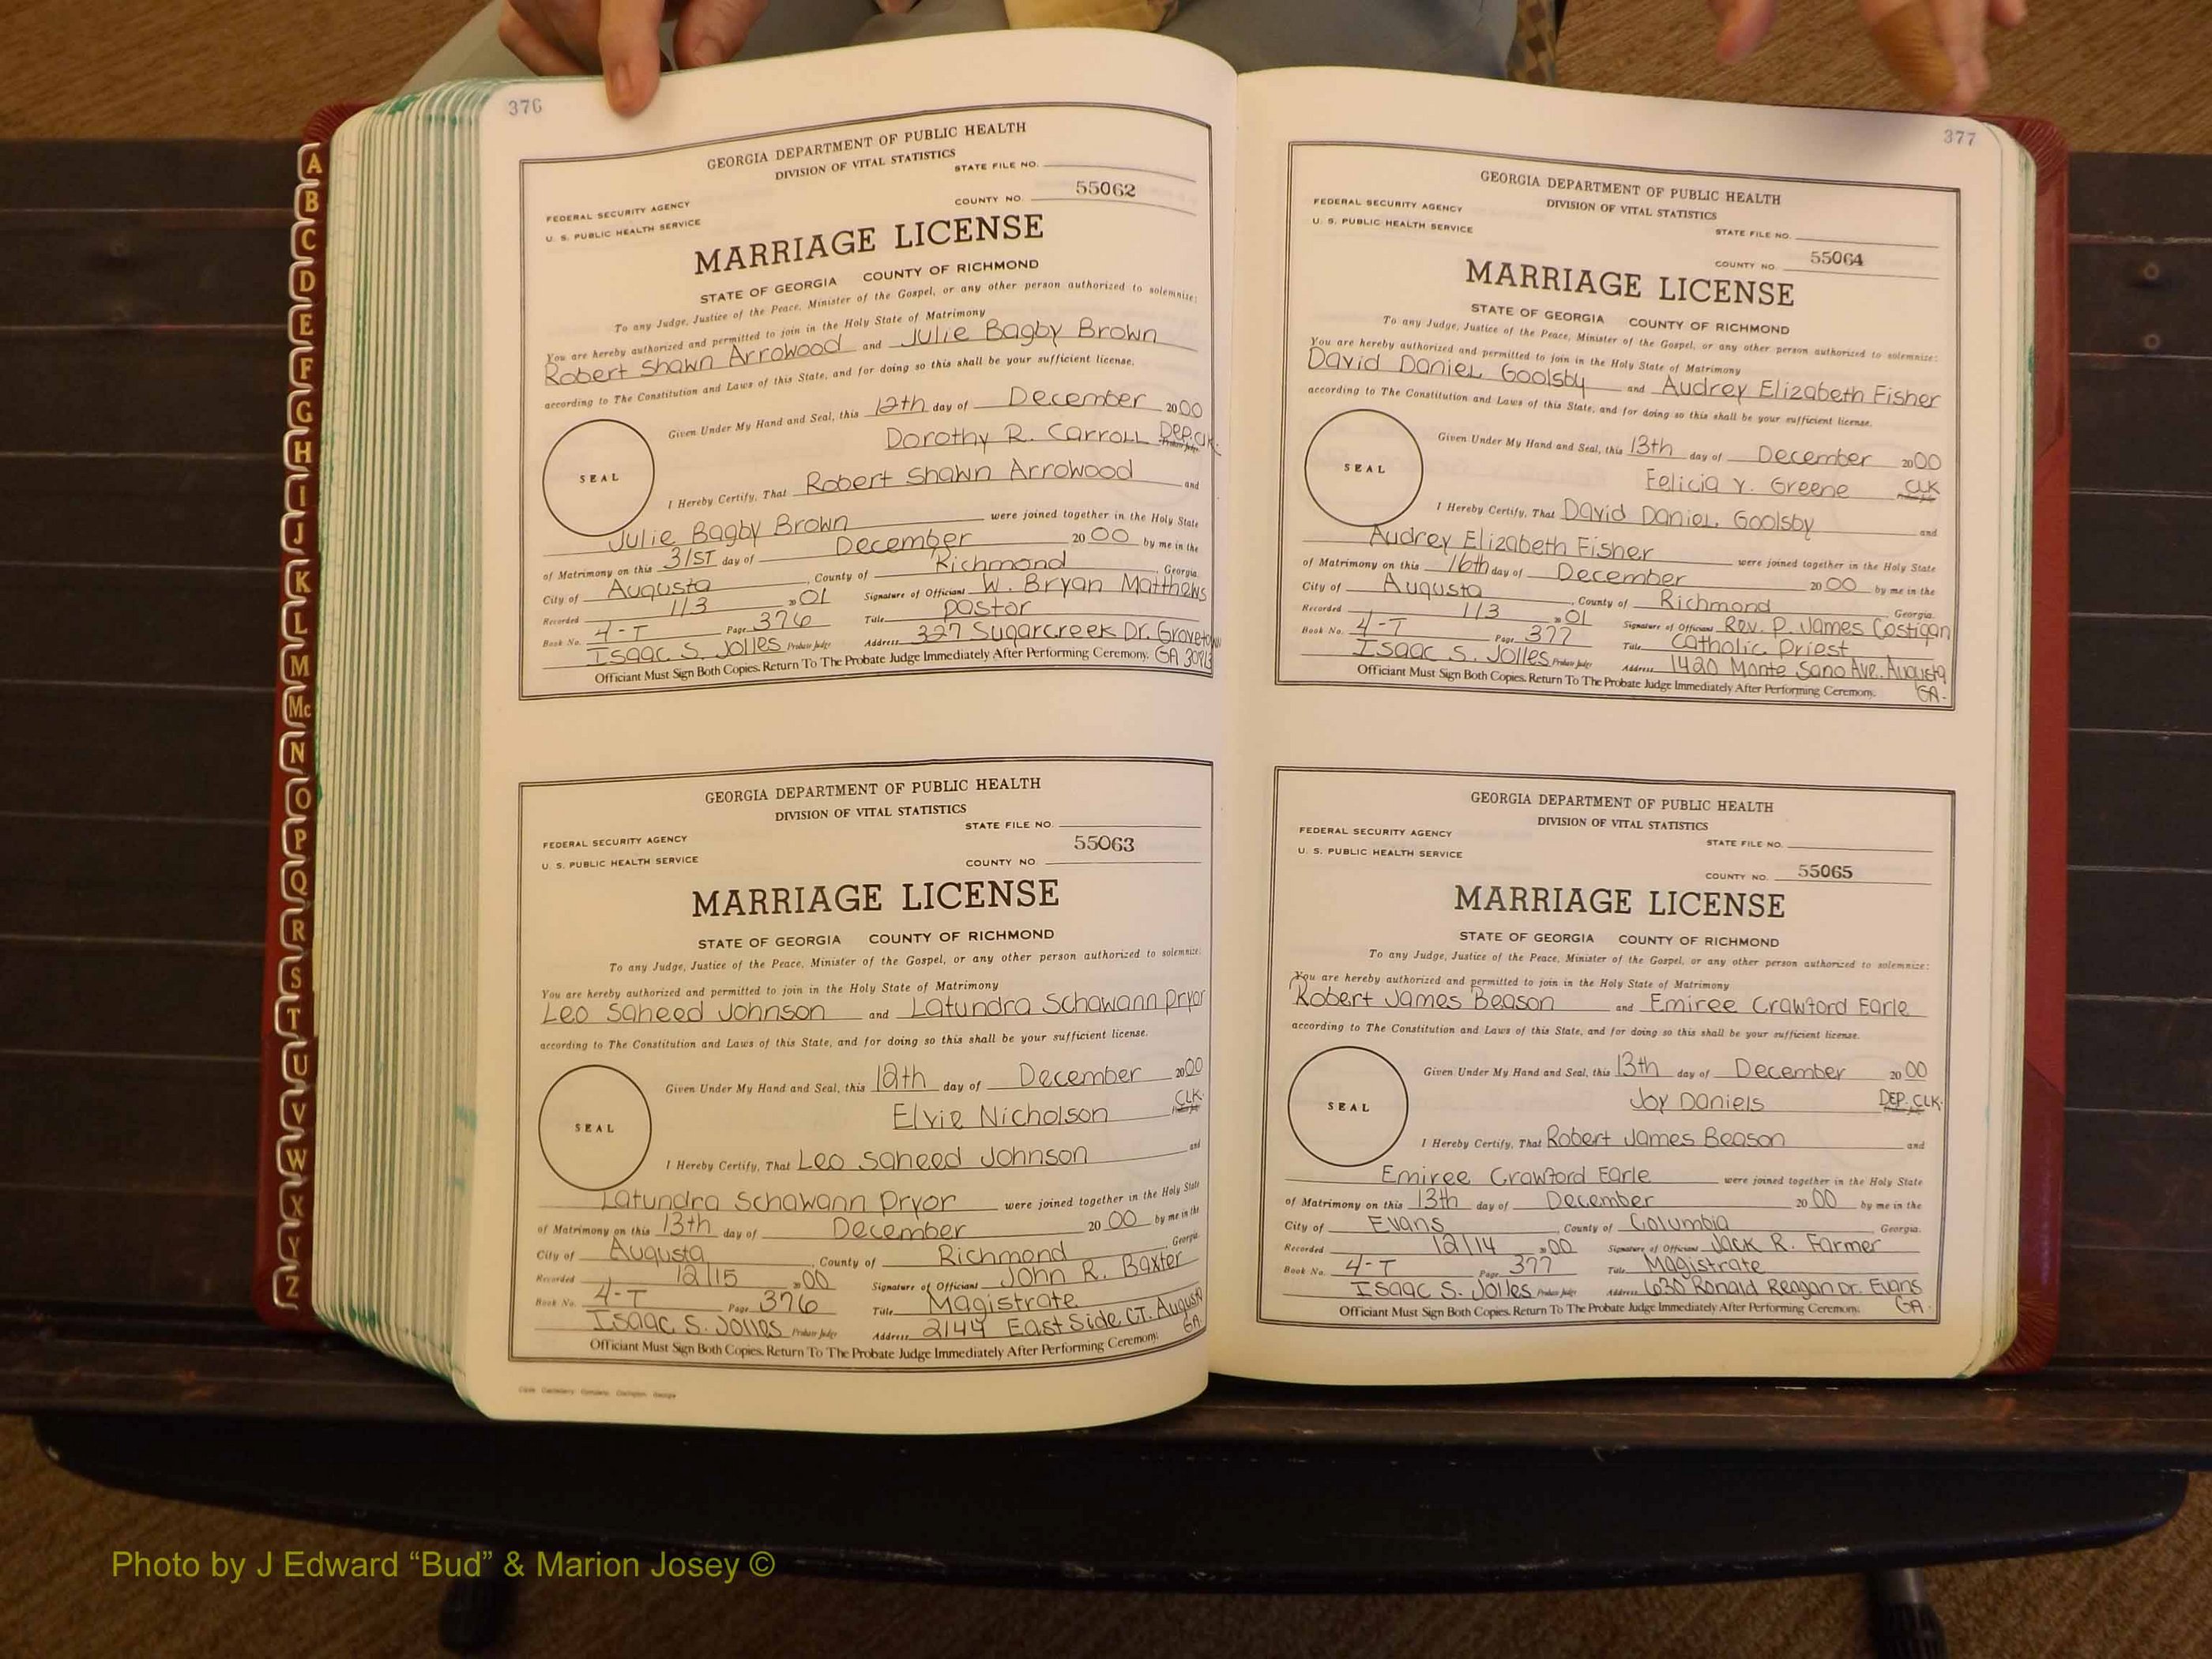 376
GEORGIA DEPARTMENT OF PUBLIC HEALTH
DIVISION OF VITAL STATISTICS
STATE FILE NO.
FEDERAL SECURITY AGENCY
U. S. PUBLIC HEALTH SERVICE
COUNTY NO. 55062
MARRIAGE LICENSE
STATE OF GEORGIA COUNTY OF RICHMOND
To any Judge, Justice of the Peace, Minister of the Gospel, or any other person authorized to solemnize:
You are hereby authorized and permitted to join in the Holy State of Matrimony
Robert Shawn Arrowood and Julie Bagby Brown
according to The Constitution and Laws of this State, and for doing so this shall be your sufficient license.
Given Under My Hand and Seal, this 12th day of December 2000
Dorothy R. Carroll Dep. Clk.
SEAL
I Hereby Certify, That Robert Shawn Arrowood and
Julie Bagby Brown were joined together in the Holy State
of Matrimony on this 31ST day of December 2000 by me in the
City of Augusta, County of Richmond, Georgia.
Recorded 1/3 2001 Signature of Officiant W. Bryan Matthews
Book No. 4-T Page 376 Title Pastor
Isaac S. Jolles Probate Judge Address 327 Sugarcreek Dr. Grovetown
GA
Officiant Must Sign Both Copies. Return To The Probate Judge Immediately After Performing Ceremony.
GEORGIA DEPARTMENT OF PUBLIC HEALTH
DIVISION OF VITAL STATISTICS
STATE FILE NO.
FEDERAL SECURITY AGENCY
U. S. PUBLIC HEALTH SERVICE
COUNTY NO. 55063
MARRIAGE LICENSE
STATE OF GEORGIA COUNTY OF RICHMOND
To any Judge, Justice of the Peace, Minister of the Gospel, or any other person authorized to solemnize:
You are hereby authorized and permitted to join in the Holy State of Matrimony
Leo Saheed Johnson and Latundra Schawann Pryor
according to The Constitution and Laws of this State, and for doing so this shall be your sufficient license.
Given Under My Hand and Seal, this 12th day of December 2000
Elvie Nicholson CLK.
SEAL
I Hereby Certify, That Leo Saheed Johnson and
Latundra Schawann Pryor were joined together in the Holy State
of Matrimony on this 13th day of December 2000 by me in the
City of Augusta, County of Richmond, Georgia.
Recorded 12/15 2000 Signature of Officiant John R. Baxter
Book No. 4-T Page 376 Title Magistrate
Isaac S. Jolles Probate Judge Address 2144 East Side CT. Augusta
GA.
Officiant Must Sign Both Copies. Return To The Probate Judge Immediately After Performing Ceremony.
377
GEORGIA DEPARTMENT OF PUBLIC HEALTH
DIVISION OF VITAL STATISTICS
FEDERAL SECURITY AGENCY
U. S. PUBLIC HEALTH SERVICE
STATE FILE NO.
COUNTY NO. 55064
MARRIAGE LICENSE
STATE OF GEORGIA COUNTY OF RICHMOND
To any Judge, Justice of the Peace, Minister of the Gospel, or any other person authorized to solemnize:
You are hereby authorized and permitted to join in the Holy State of Matrimony
David Daniel Goolsby and Audrey Elizabeth Fisher
according to The Constitution and Laws of this State, and for doing so this shall be your sufficient license.
Given Under My Hand and Seal, this 13th day of December 2000
Felicia Y. Greene CLK
SEAL
I Hereby Certify, That David Daniel Goolsby and
Audrey Elizabeth Fisher were joined together in the Holy State
of Matrimony on this 16th day of December 2000 by me in the
City of Augusta, County of Richmond Georgia.
Recorded 1/3 2001 Signature of Officiant Rev. P. James Costigan
Book No. 4-T Page 377 Title Catholic Priest
Isaac S. Jolles Probate Judge Address 1420 Monte Sano Ave. Augusta
GA.
Officiant Must Sign Both Copies. Return To The Probate Judge Immediately After Performing Ceremony.
GEORGIA DEPARTMENT OF PUBLIC HEALTH
DIVISION OF VITAL STATISTICS
FEDERAL SECURITY AGENCY
U. S. PUBLIC HEALTH SERVICE
STATE FILE NO.
COUNTY NO. 55065
MARRIAGE LICENSE
STATE OF GEORGIA COUNTY OF RICHMOND
To any Judge, Justice of the Peace, Minister of the Gospel, or any other person authorized to solemnize:
You are hereby authorized and permitted to join in the Holy State of Matrimony
Robert James Beason and Emiree Crawford Earle
according to The Constitution and Laws of this State, and for doing so this shall be your sufficient license.
Given Under My Hand and Seal, this 13th day of December 2000
Joy Daniels DEP. CLK.
SEAL
I Hereby Certify, That Robert James Beason and
Emiree Crawford Earle were joined together in the Holy State
of Matrimony on this 13th day of December 2000 by me in the
City of Evans, County of Columbia Georgia.
Recorded 12/14 2000 Signature of Officiant Jack R. Farmer
Book No. 4-T Page 377 Title Magistrate
Isaac S. Jolles Probate Judge Address 630 Ronald Reagan Dr. Evans
GA.
Officiant Must Sign Both Copies. Return To The Probate Judge Immediately After Performing Ceremony.
A
B
C
D
E
F
G
H
I
J
K
L
M
Mc
N
O
P
Q
R
S
T
U
V
W
X
Y
Z
Photo by J Edward “Bud” & Marion Josey ©